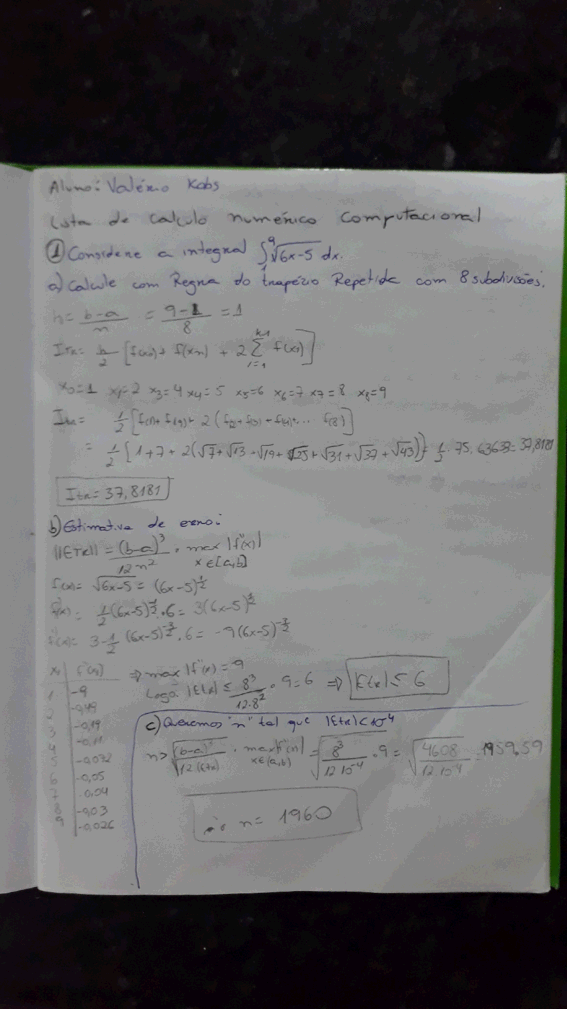 Aluno: Valério Kobs
Lista de calculo numérico computacional
① Considere a integral ∫₁⁹ √6x-5 dx.
a) Calcule com Regra do trapézio Repetida com 8 subdivisões.
h = b-a/n = 9-1/8 = 1
Itr = h/2 [f(x₀) + f(xn) + 2 Σ f(xi)]
x₀=1 x₁=2 x₃=4 x₄=5 x₅=6 x₆=7 x₇=8 x₈=9
Itr = 1/2 [f(1) + f(9) + 2(f(2) + f(3) + f(4) + ... f(8)]
= 1/2 [1+7+2(√7+√13+√19+√25+√31+√37+√43)] = 1/2 . 75,63637 = 37,8181
Itr = 37,8181
b) Estimativa de erro:
||ETR|| = (b-a)³/12n² . max |f''(x)|
x∈[a,b]
f(x) = √6x-5 = (6x-5)^1/2
f'(x) = 1/2 (6x-5)^-1/2 . 6 = 3(6x-5)^-1/2
f''(x) = 3.-1/2 (6x-5)^-3/2 . 6 = -9(6x-5)^-3/2
⇒ max |f''(x)| = 9
Logo |Etr| ≤ 8³/12.8² . 9 = 6 ⇒ |Etr| ≤ 6
1 -9
2 -0,49
3 -0,19
4 -0,11
5 -0,072
6 -0,05
7 -0,04
8 -0,03
9 -0,026
c) Queremos "n" tal que |Etr| < 10⁻⁴
n > √(b-a)³/12 |Etr| . max |f''(x)| = √8³/12 10⁻⁴ . 9 = √4608/12.10⁻⁴ = 1959,59
x∈(a,b)
∴ n = 1960